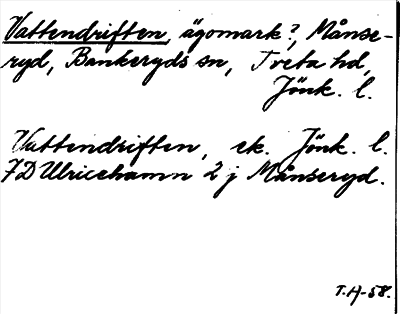 Vattendriften, ägomark?, Månse-
ryd, Bankeryds sn, Tveta hd,
Jönk. l.
Vattendriften, ek. Jönk. l.
7D Ulricehamn 2 j Månseryd.
T.H-58.